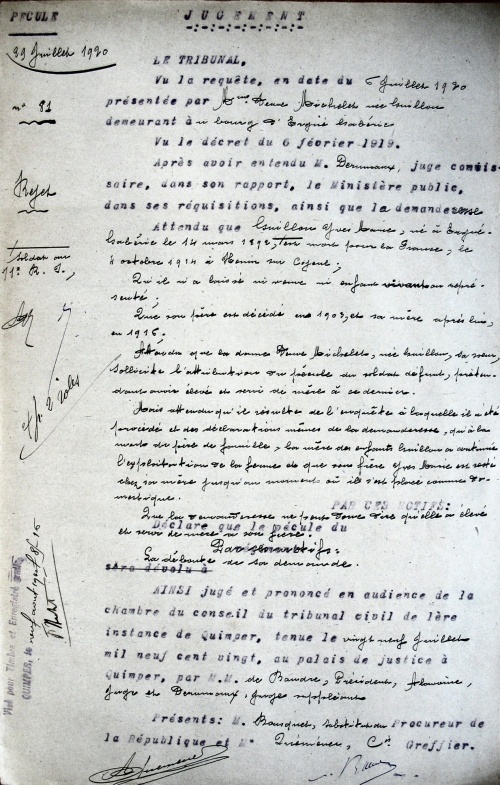 PECULE
JUGEMENT
29 Juillet 1920
n° 81
Rejet
Soldat au
11° R. I.,
LE TRIBUNAL,
Vu la requête, en date du 6 Juillet 1920
présentée par Mme Veuve Michelet née Guillou
demeurant à u bourg d'Ergué Gabéric
Vu le décret du 6 février 1919.
Après avoir entendu M. Derumaux, juge commis-
saire, dans son rapport, le Ministère public,
dans ses réquisitions, ainsi que la demanderesse
Attendu que Guillou Yves Marie, né à Ergué-
Gabéric le 14 mars 1892, est mort pour la France, le
4 octobre 1914 à Hénin sur Cojeul;
Qu'il n'a laissé ni veuve ni enfant vivant ou repré-
senté;
Que son père est décédé en 1903, et sa mère après lui,
en 1916.
Attendu que la dame Veuve Michelet, née Guillou, sa sœur,
sollicite l'attribution du pécule du soldat défunt, préten-
dant avoir élevé et servi de mère à ce dernier.
Mais attendu qu'il résulte de l'enquête à laquelle il a été
procédé et des déclarations mêmes de la demanderesse, qu'à la
mort du père de famille, la mère des enfants Guillou a continué
l'exploitation de la ferme et que son frère Yves Marie est resté
chez sa mère jusqu'au moment où il s'est placé comme do-
mestique.
PAR CES MOTIFS:
Que la demanderesse ne peut donc dire qu'elle a élevé
et servi de mère à son frère.
Déclare que le pécule du
Par ces motifs:
La déboute de sa demande.
sera dévolu à
AINSI jugé et prononcé en audience de la
chambre du conseil du tribunal civil de 1ère
instance de Quimper, tenue le vingt neuf Juillet
mil neuf cent vingt, au palais de justice à
Quimper, par M.M. de Baudre, Président,
Juge et Derumaux, Juge suppléant
Présents: M. Bousquet, substitut du Procureur de
la République et M° Quéméner, Cis Greffier.
Visé pour Timbre et Enregistré gratis
QUIMPER, le neuf août 1920